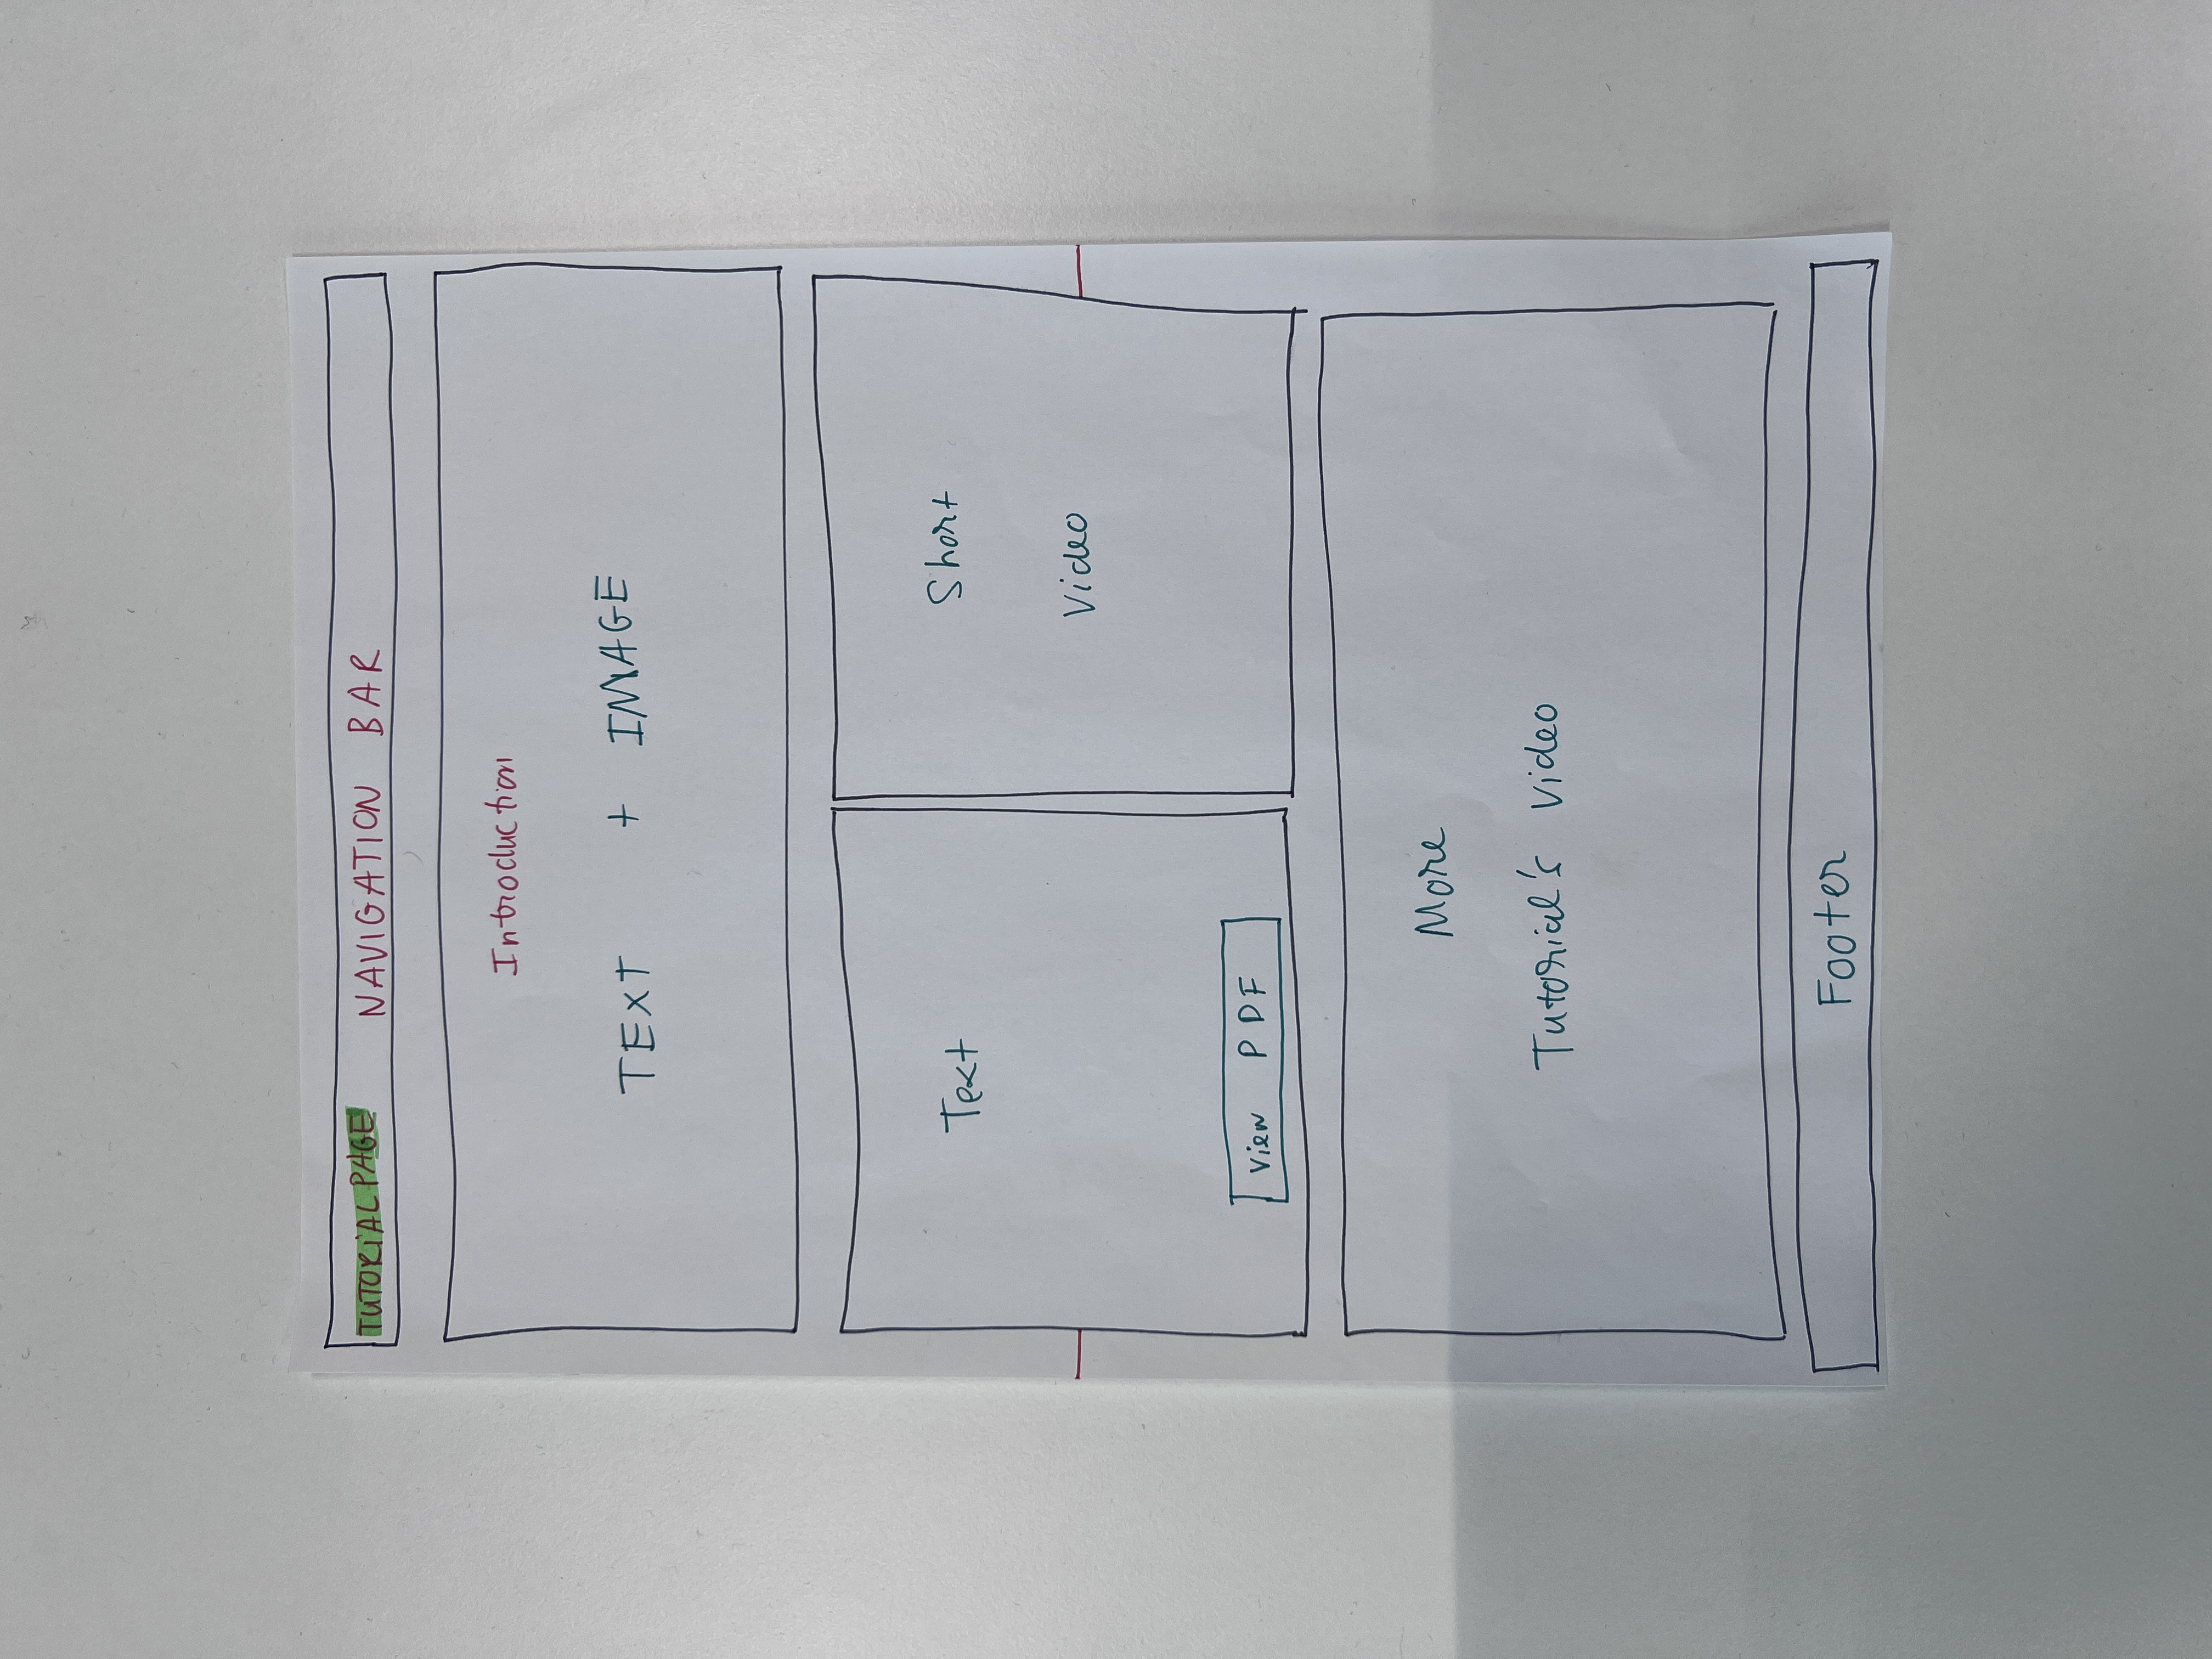 TUTORIAL PAGE NAVIGATION BAR
Introduction
TEXT + IMAGE
Text
View PDF
Short
Video
More
Tutorial's Video
Footer